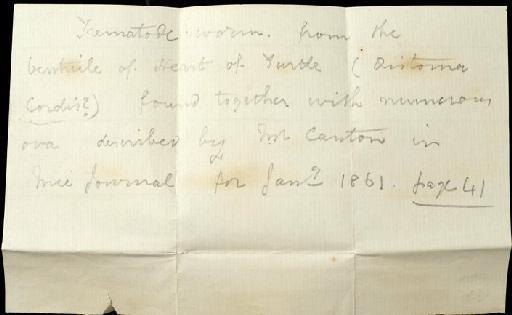 Trematode worm. from the
ventricle of Heart of Turtle (Distoma
Cordis?) found together with numerous
ova described by Mr Canton in
Mic Journal for Jany 1861. page 41